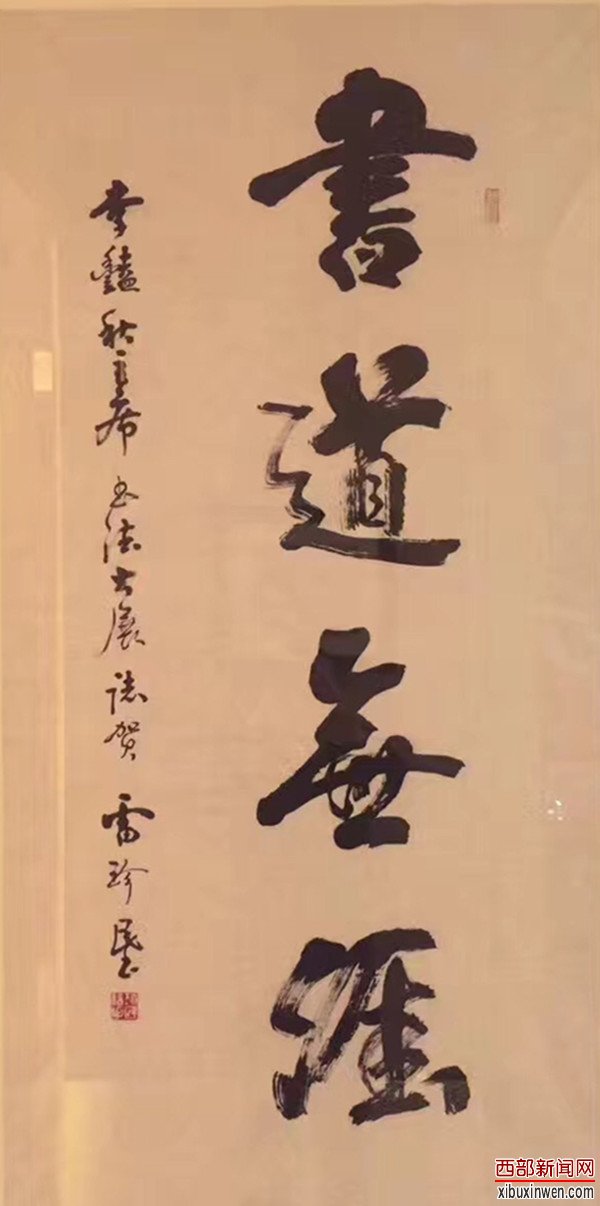 書道無涯
李艷秋主席书法大展誌贺 雷珍民
西部新闻网
xibuxinwen.com